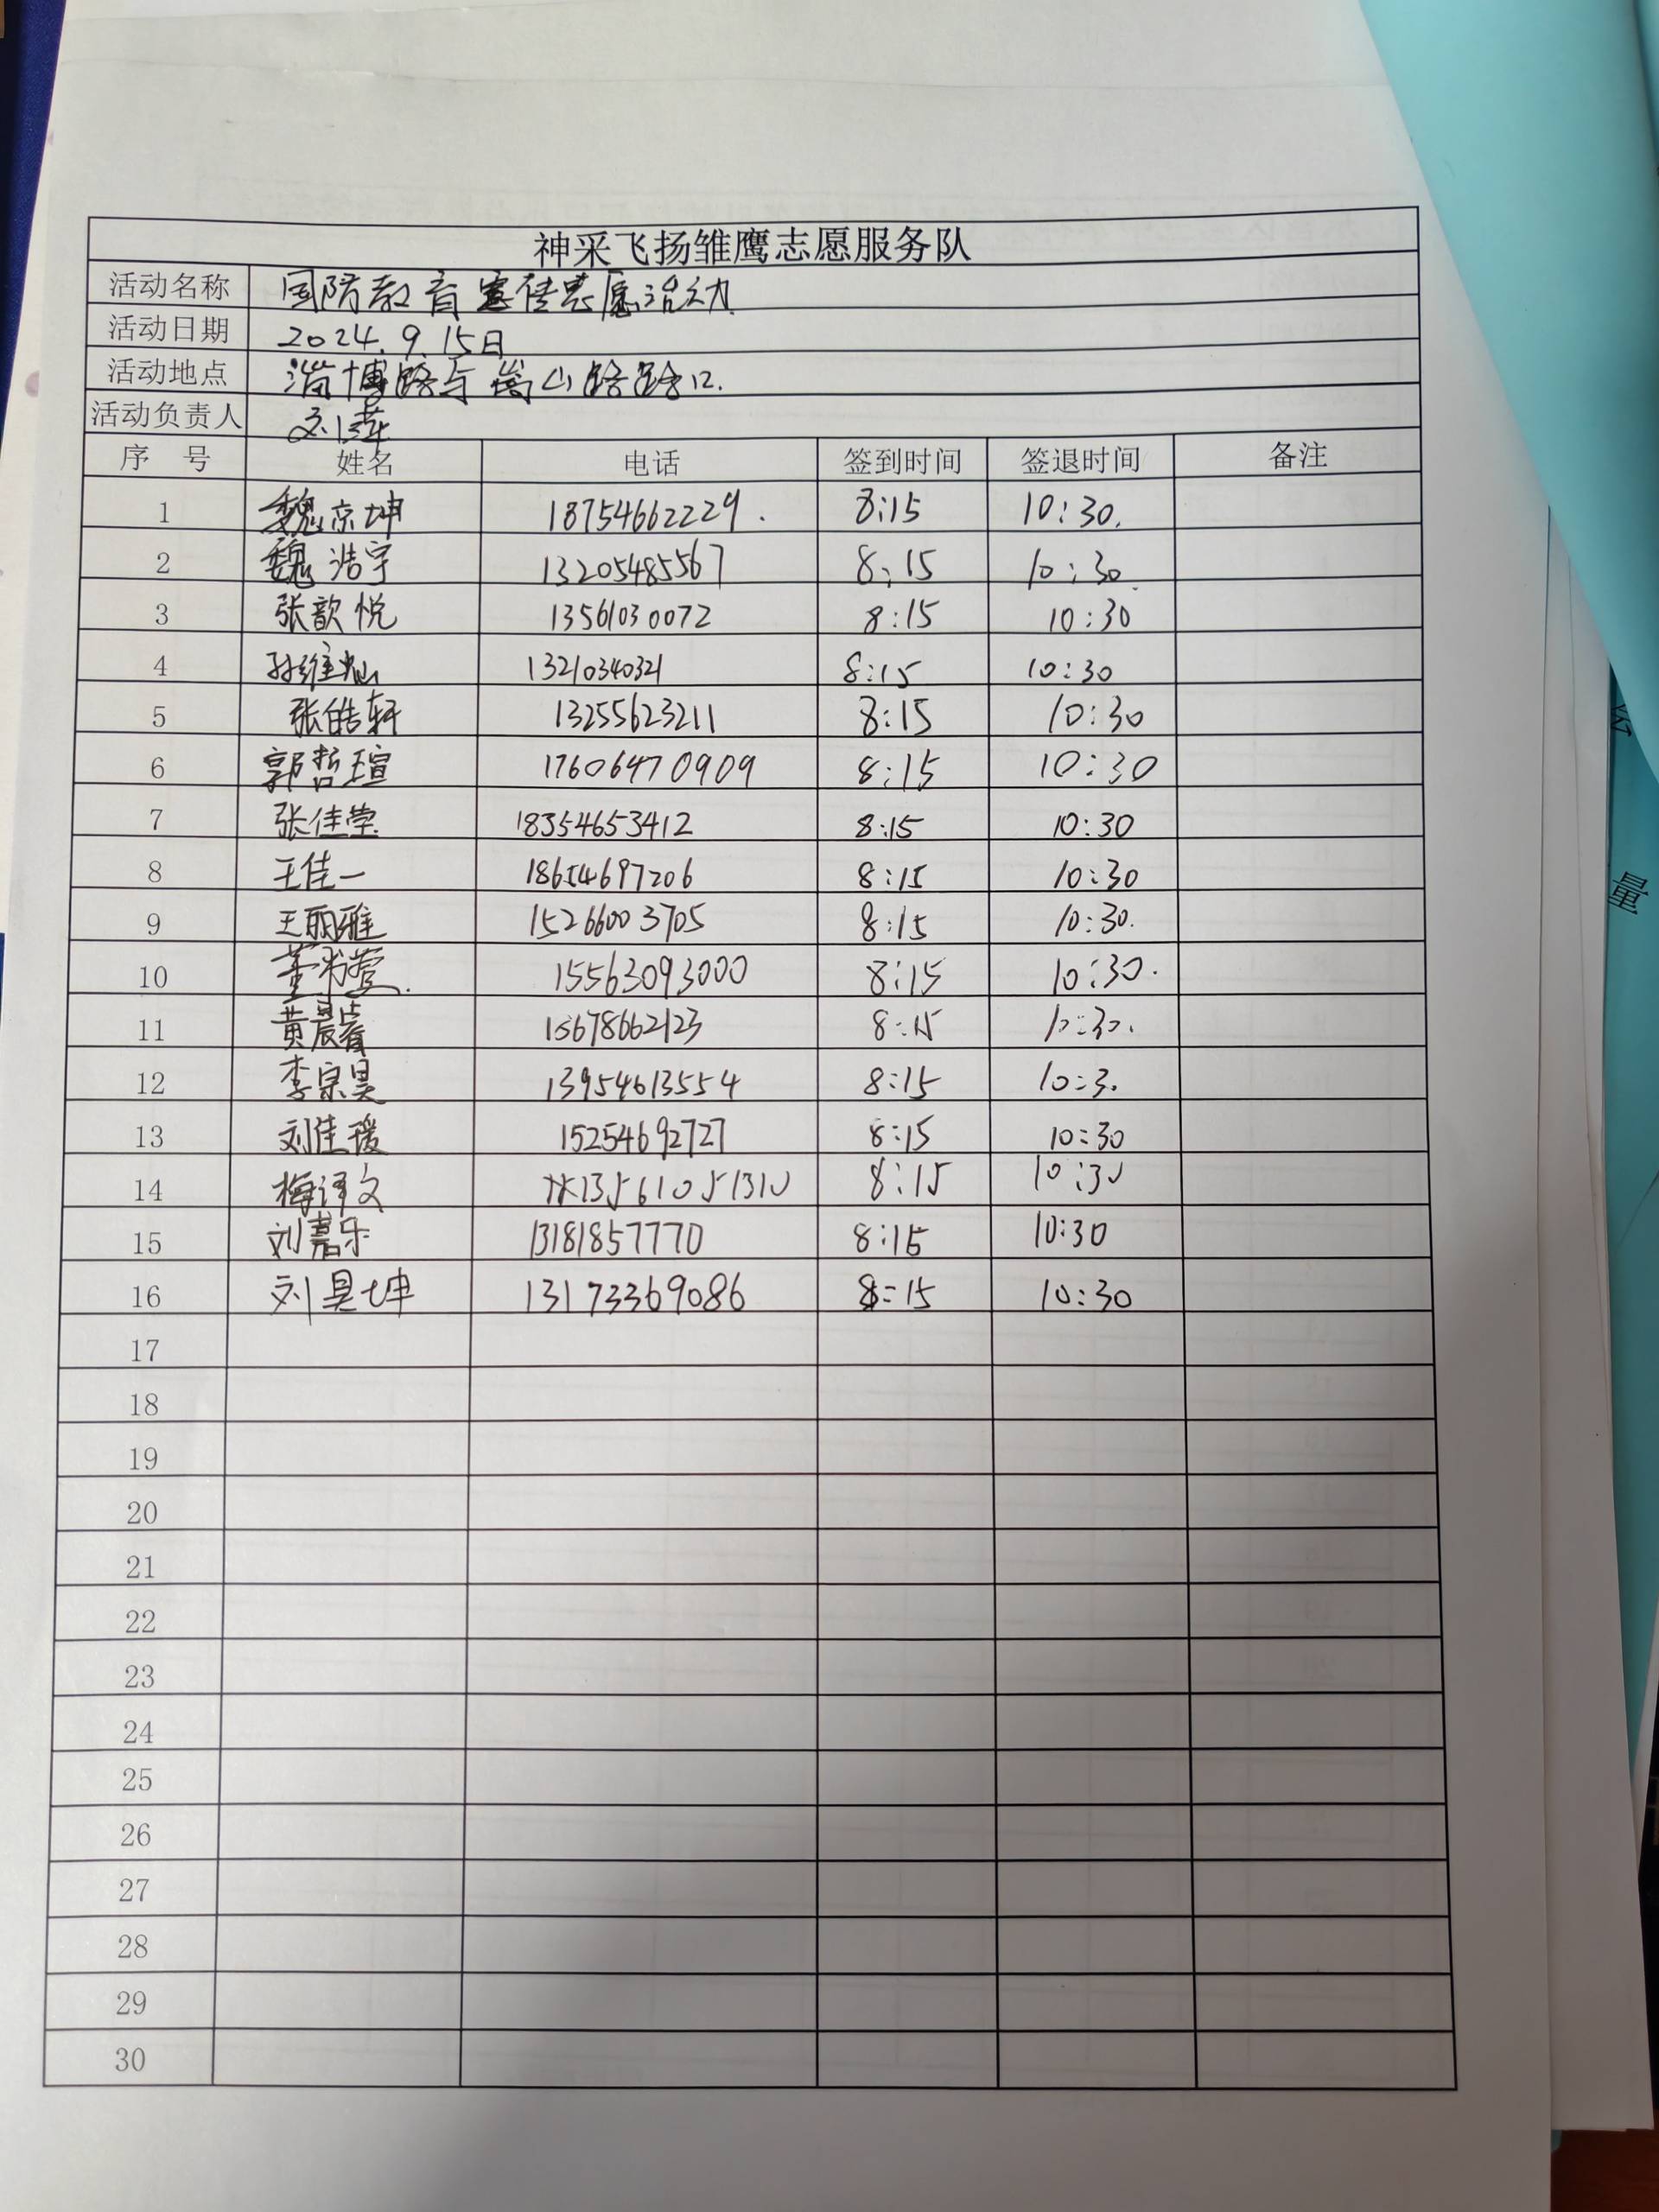 神采飞扬雏鹰志愿服务队
活动名称 国防教育宣传志愿活动
活动日期 2024.9.15日
活动地点 淄博路与嵩山路路口.
活动负责人 刘萍
序 号 姓名 电话 签到时间 签退时间 备注
1 魏京坤 18754662229. 8:15 10:30.
2 魏浩宇 13205485567 8:15 10:30.
3 张歆悦 13561030072 8:15 10:30
4 孙维灿 13210340321 8:15 10:30
5 张皓轩 13255623211 8:15 10:30
6 郭哲瑄 17606470909 8:15 10:30
7 张佳莹 18354653412 8:15 10:30
8 王佳一 18654697206 8:15 10:30
9 王丽雅 15266003705 8:15 10:30.
10 董书萱. 15563093000 8:15 10:30.
11 黄晨睿 15678662123 8:15 10:30.
12 李宗昊 13954613554 8:15 10:3.
13 刘佳瑷 15254692727 8:15 10:30
14 梅译文 13561051310 8:15 10:30
15 刘嘉乐 13181857770 8:15 10:30
16 刘昊坤 13173369086 8:15 10:30
17
18
19
20
21
22
23
24
25
26
27
28
29
30
量